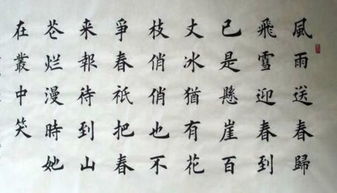 風雨送春歸
飛雪迎春到
已是懸崖百
丈冰猶有花
枝俏俏也不
爭春祇把春
來報待到山
花烂漫時她
在叢中笑